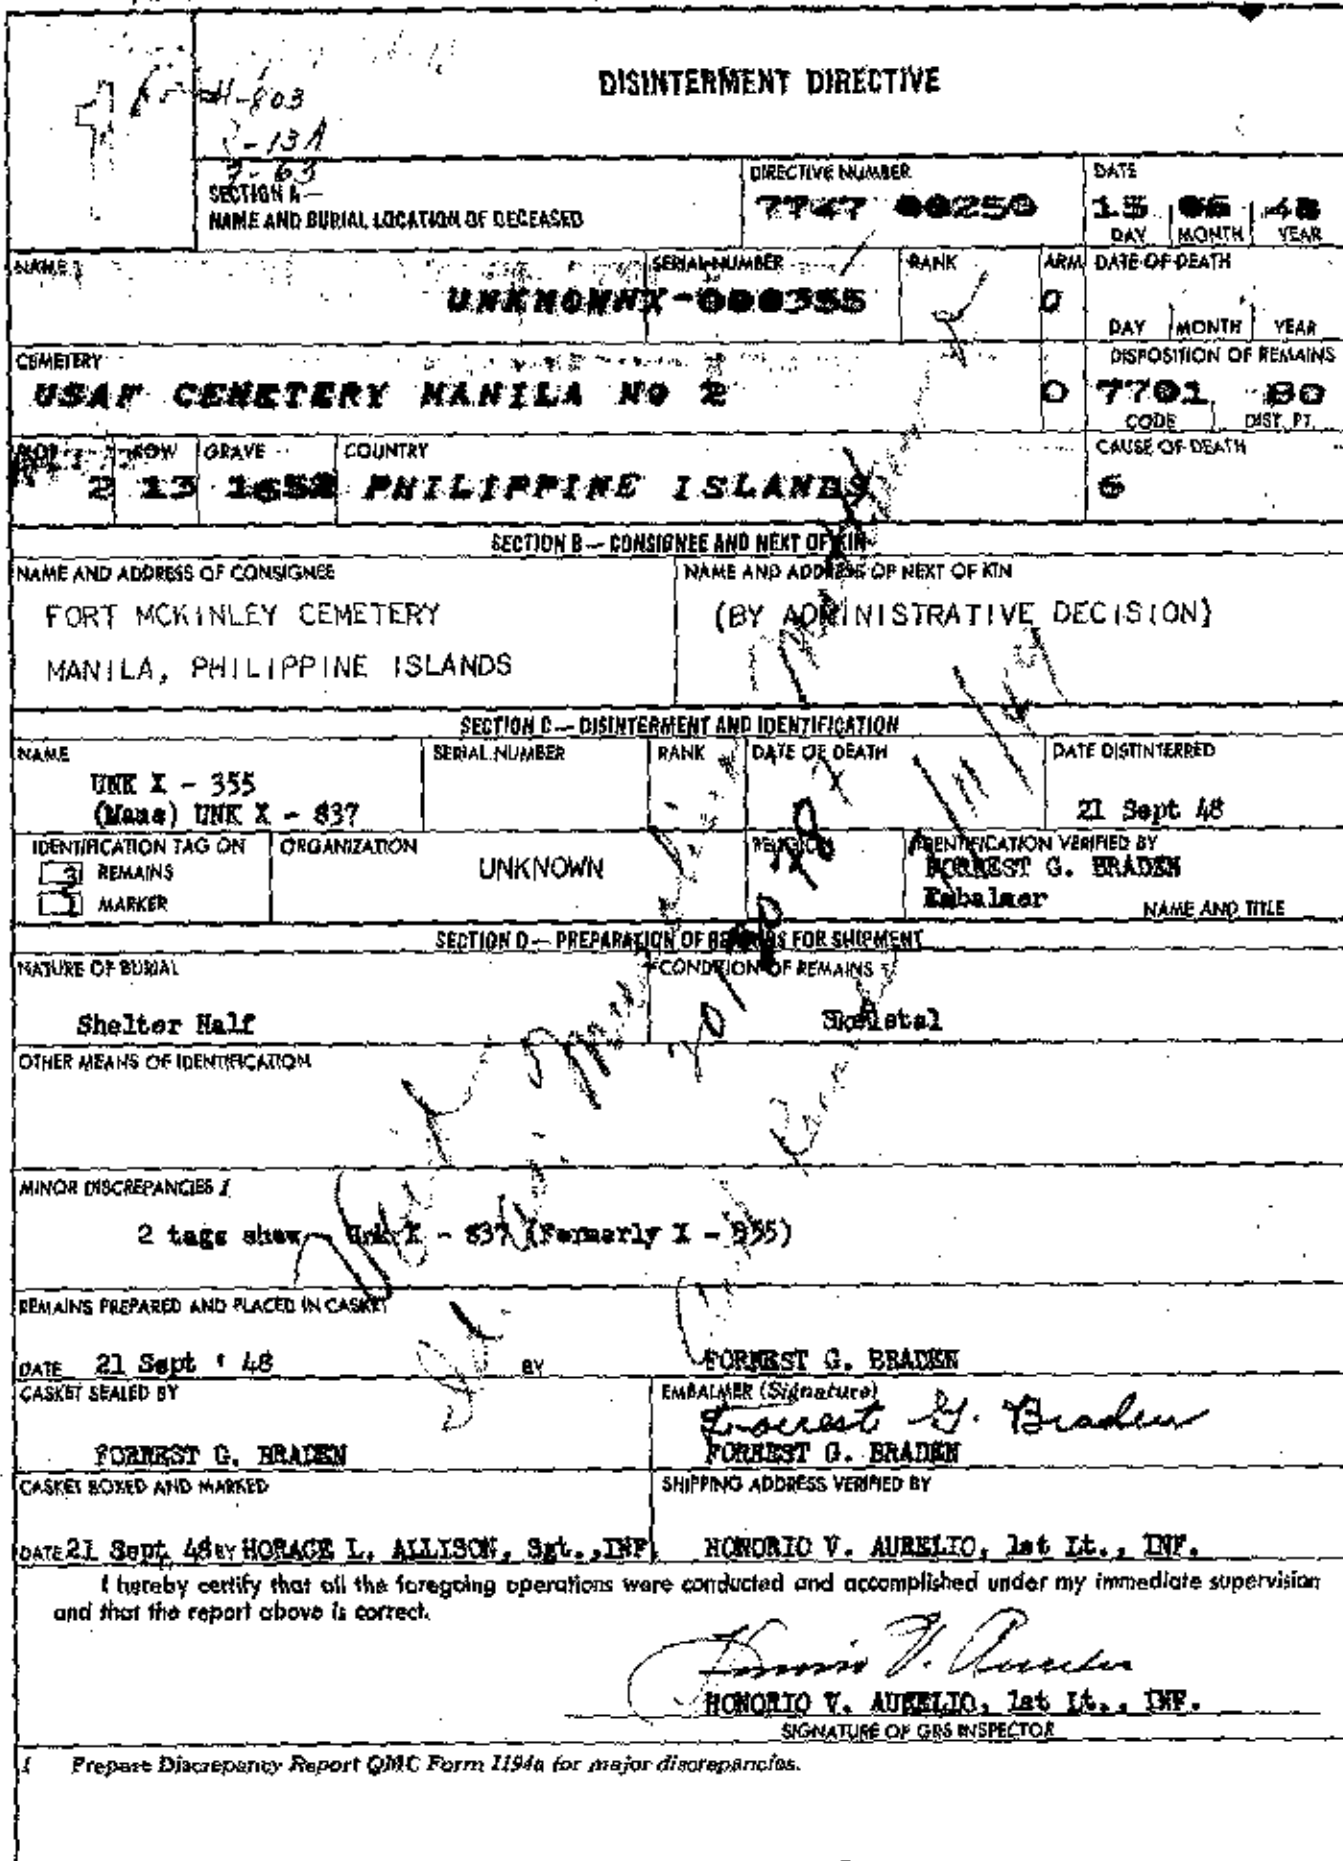 DISINTERMENT DIRECTIVE
SECTION A—
NAME AND BURIAL LOCATION OF DECEASED
DIRECTIVE NUMBER
7747 00250
DATE
15 48
DAY MONTH YEAR
NAME
SERIAL NUMBER
UNKNOWNX-000355
RANK
ARM
O
DATE OF DEATH
DAY MONTH YEAR
CEMETERY
USAF CEMETERY MANILA NO 2
O
DISPOSITION OF REMAINS
7701 80
CODE DIST. PT.
ROW GRAVE COUNTRY
2 13 1652 PHILIPPINE ISLANDS
CAUSE OF DEATH
6
SECTION B — CONSIGNEE AND NEXT OF KIN
NAME AND ADDRESS OF CONSIGNEE
FORT MCKINLEY CEMETERY
MANILA, PHILIPPINE ISLANDS
NAME AND ADDRESS OF NEXT OF KIN
(BY ADMINISTRATIVE DECISION)
SECTION C — DISINTERMENT AND IDENTIFICATION
NAME
UNK X - 355
(Maus) UNK X - 837
SERIAL NUMBER
RANK
DATE OF DEATH
DATE DISTINTERRED
21 Sept 48
IDENTIFICATION TAG ON
REMAINS
MARKER
ORGANIZATION
UNKNOWN
RELIGION
IDENTIFICATION VERIFIED BY
FORREST G. BRADEN
Embalmer
NAME AND TITLE
SECTION D — PREPARATION OF REMAINS FOR SHIPMENT
NATURE OF BURIAL
Shelter Half
CONDITION OF REMAINS
Skeletal
OTHER MEANS OF IDENTIFICATION
MINOR DISCREPANCIES 1
2 tags show Unk X - 837 (Formerly X - 355)
REMAINS PREPARED AND PLACED IN CASKET
DATE 21 Sept ' 48 BY FORREST G. BRADEN
CASKET SEALED BY
FORREST G. BRADEN
EMBALMER (Signature)
Forrest G. Braden
FORREST G. BRADEN
CASKET BOXED AND MARKED
DATE 21 Sept 48 BY HORACE L. ALLISON, Sgt., INF.
SHIPPING ADDRESS VERIFIED BY
HONORIO V. AURELIO, 1st Lt., INF.
I hereby certify that all the foregoing operations were conducted and accomplished under my immediate supervision
and that the report above is correct.
HONORIO V. AURELIO, 1st Lt., INF.
SIGNATURE OF GRS INSPECTOR
1 Prepare Discrepancy Report QMC Form 1194a for major discrepancies.